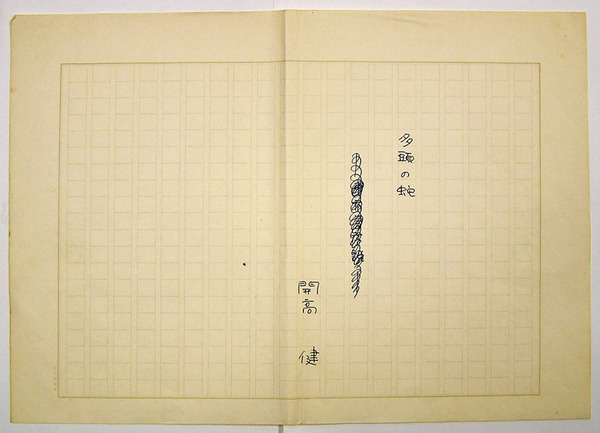 多頭の蛇
開高 健